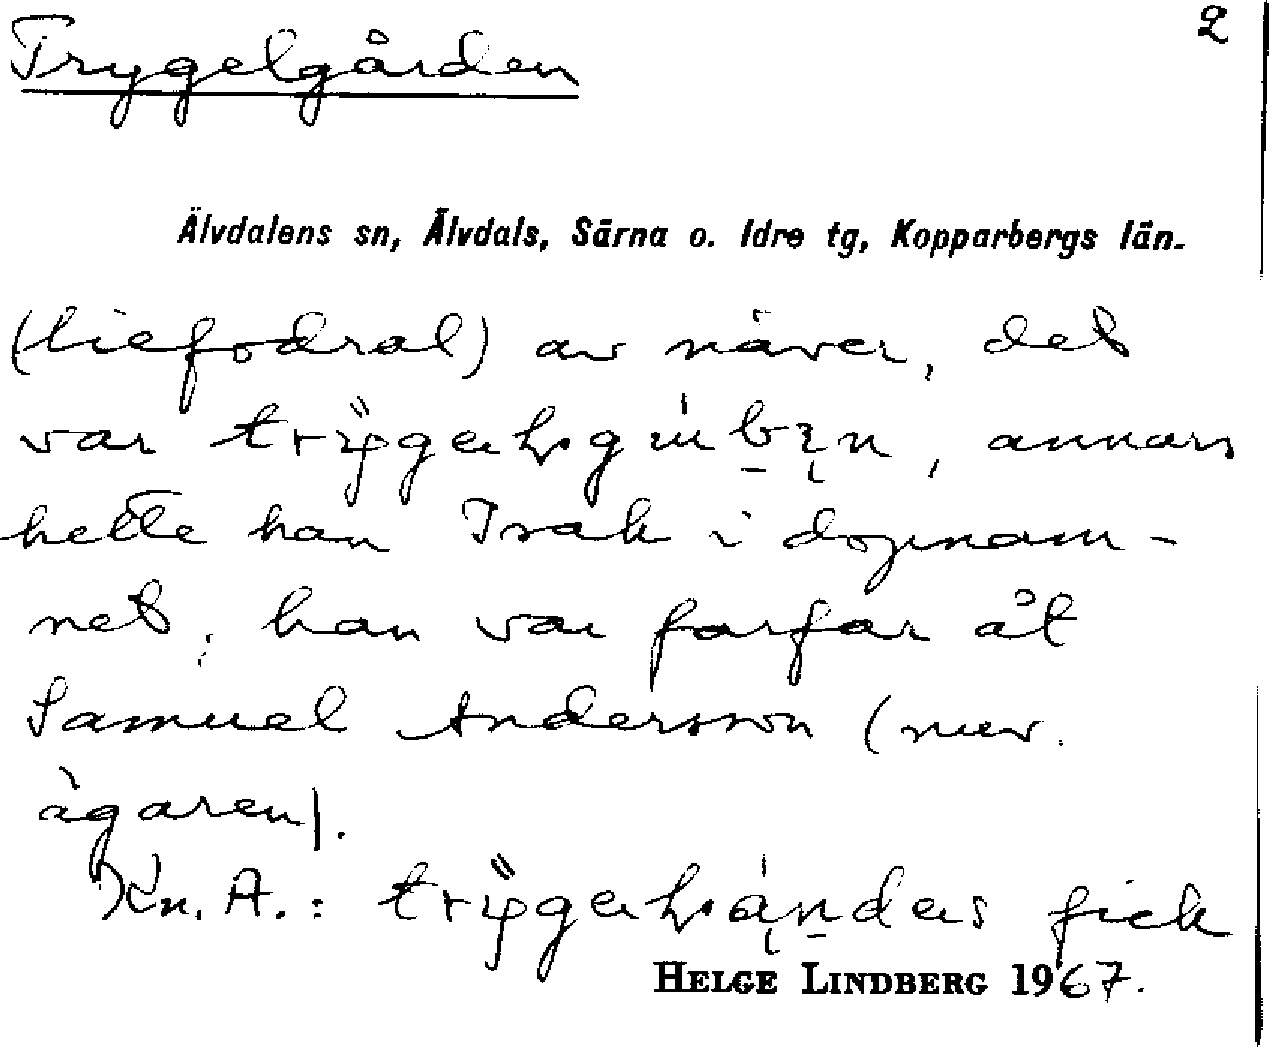 2
Trygelgården
Älvdalens sn, Älvdals, Särna o. Idre tg, Kopparbergs län.
(liefodral) av näver, det
var , annars
hette han Isak i dopnam-
net; han var farfar åt
Samuel Andersson (nuv.
ägaren).
Kn. A.: fick
HELGE LINDBERG 1967.